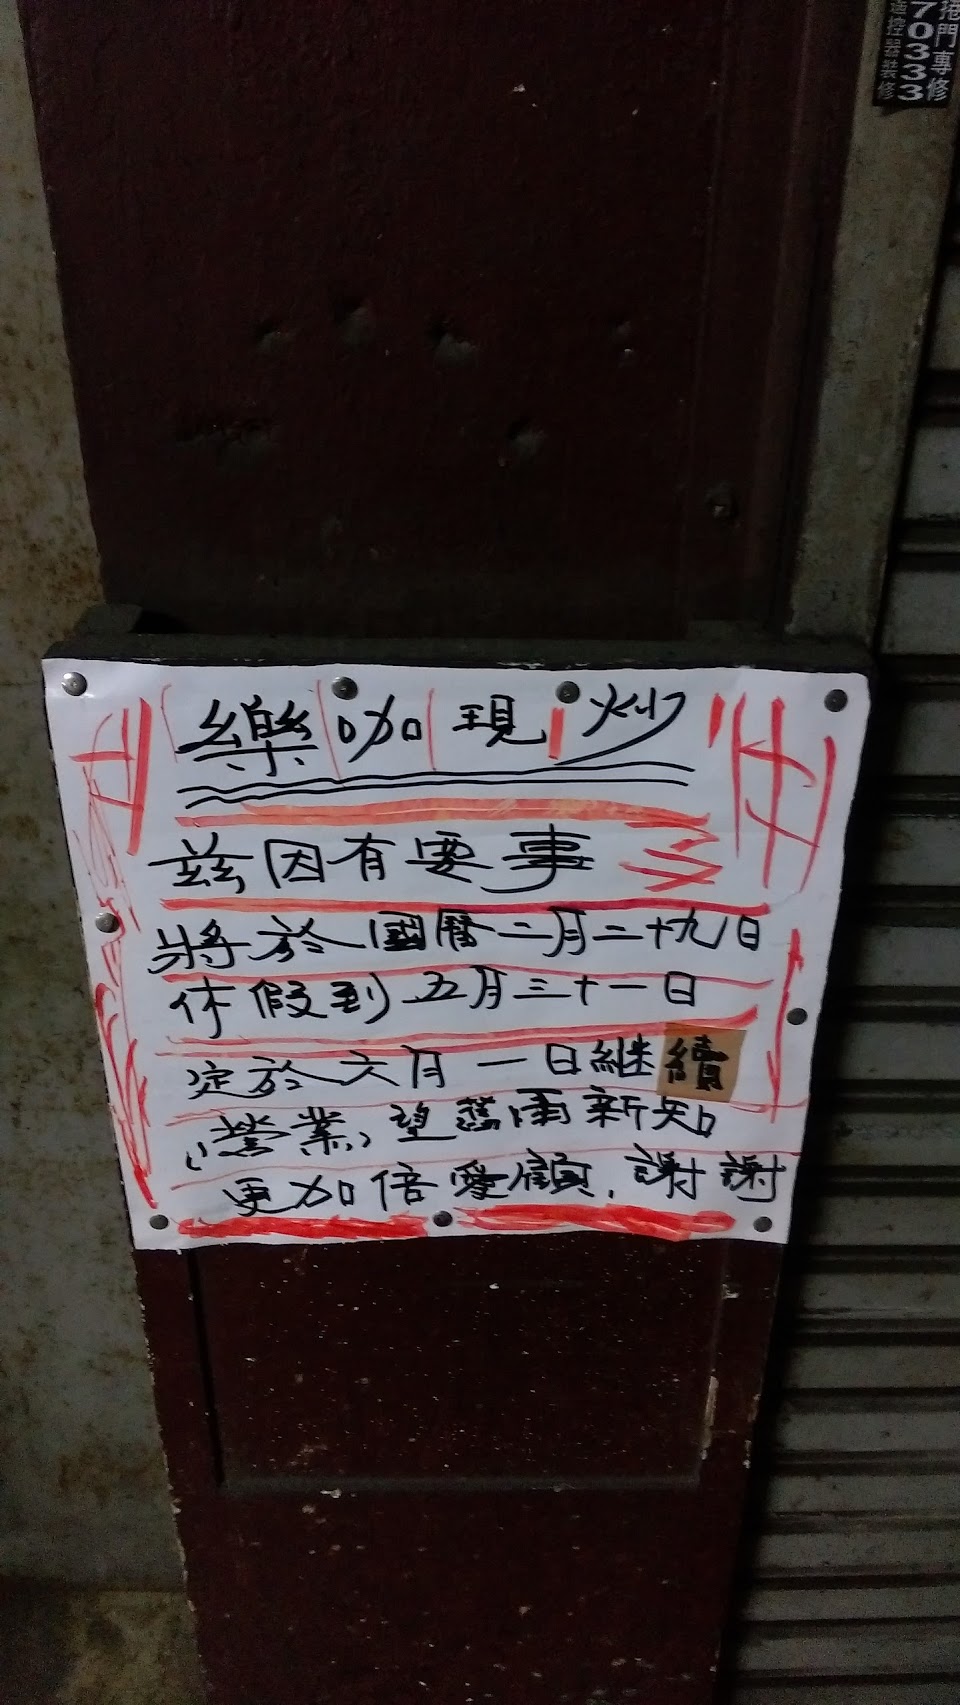 捲門專修
70333
遙控器裝修
樂咖現炒
茲因有要事
將於國曆二月二十九日
休假到五月三十一日
定於六月一日継續
營業，望舊雨新知
更加倍愛顧，謝謝